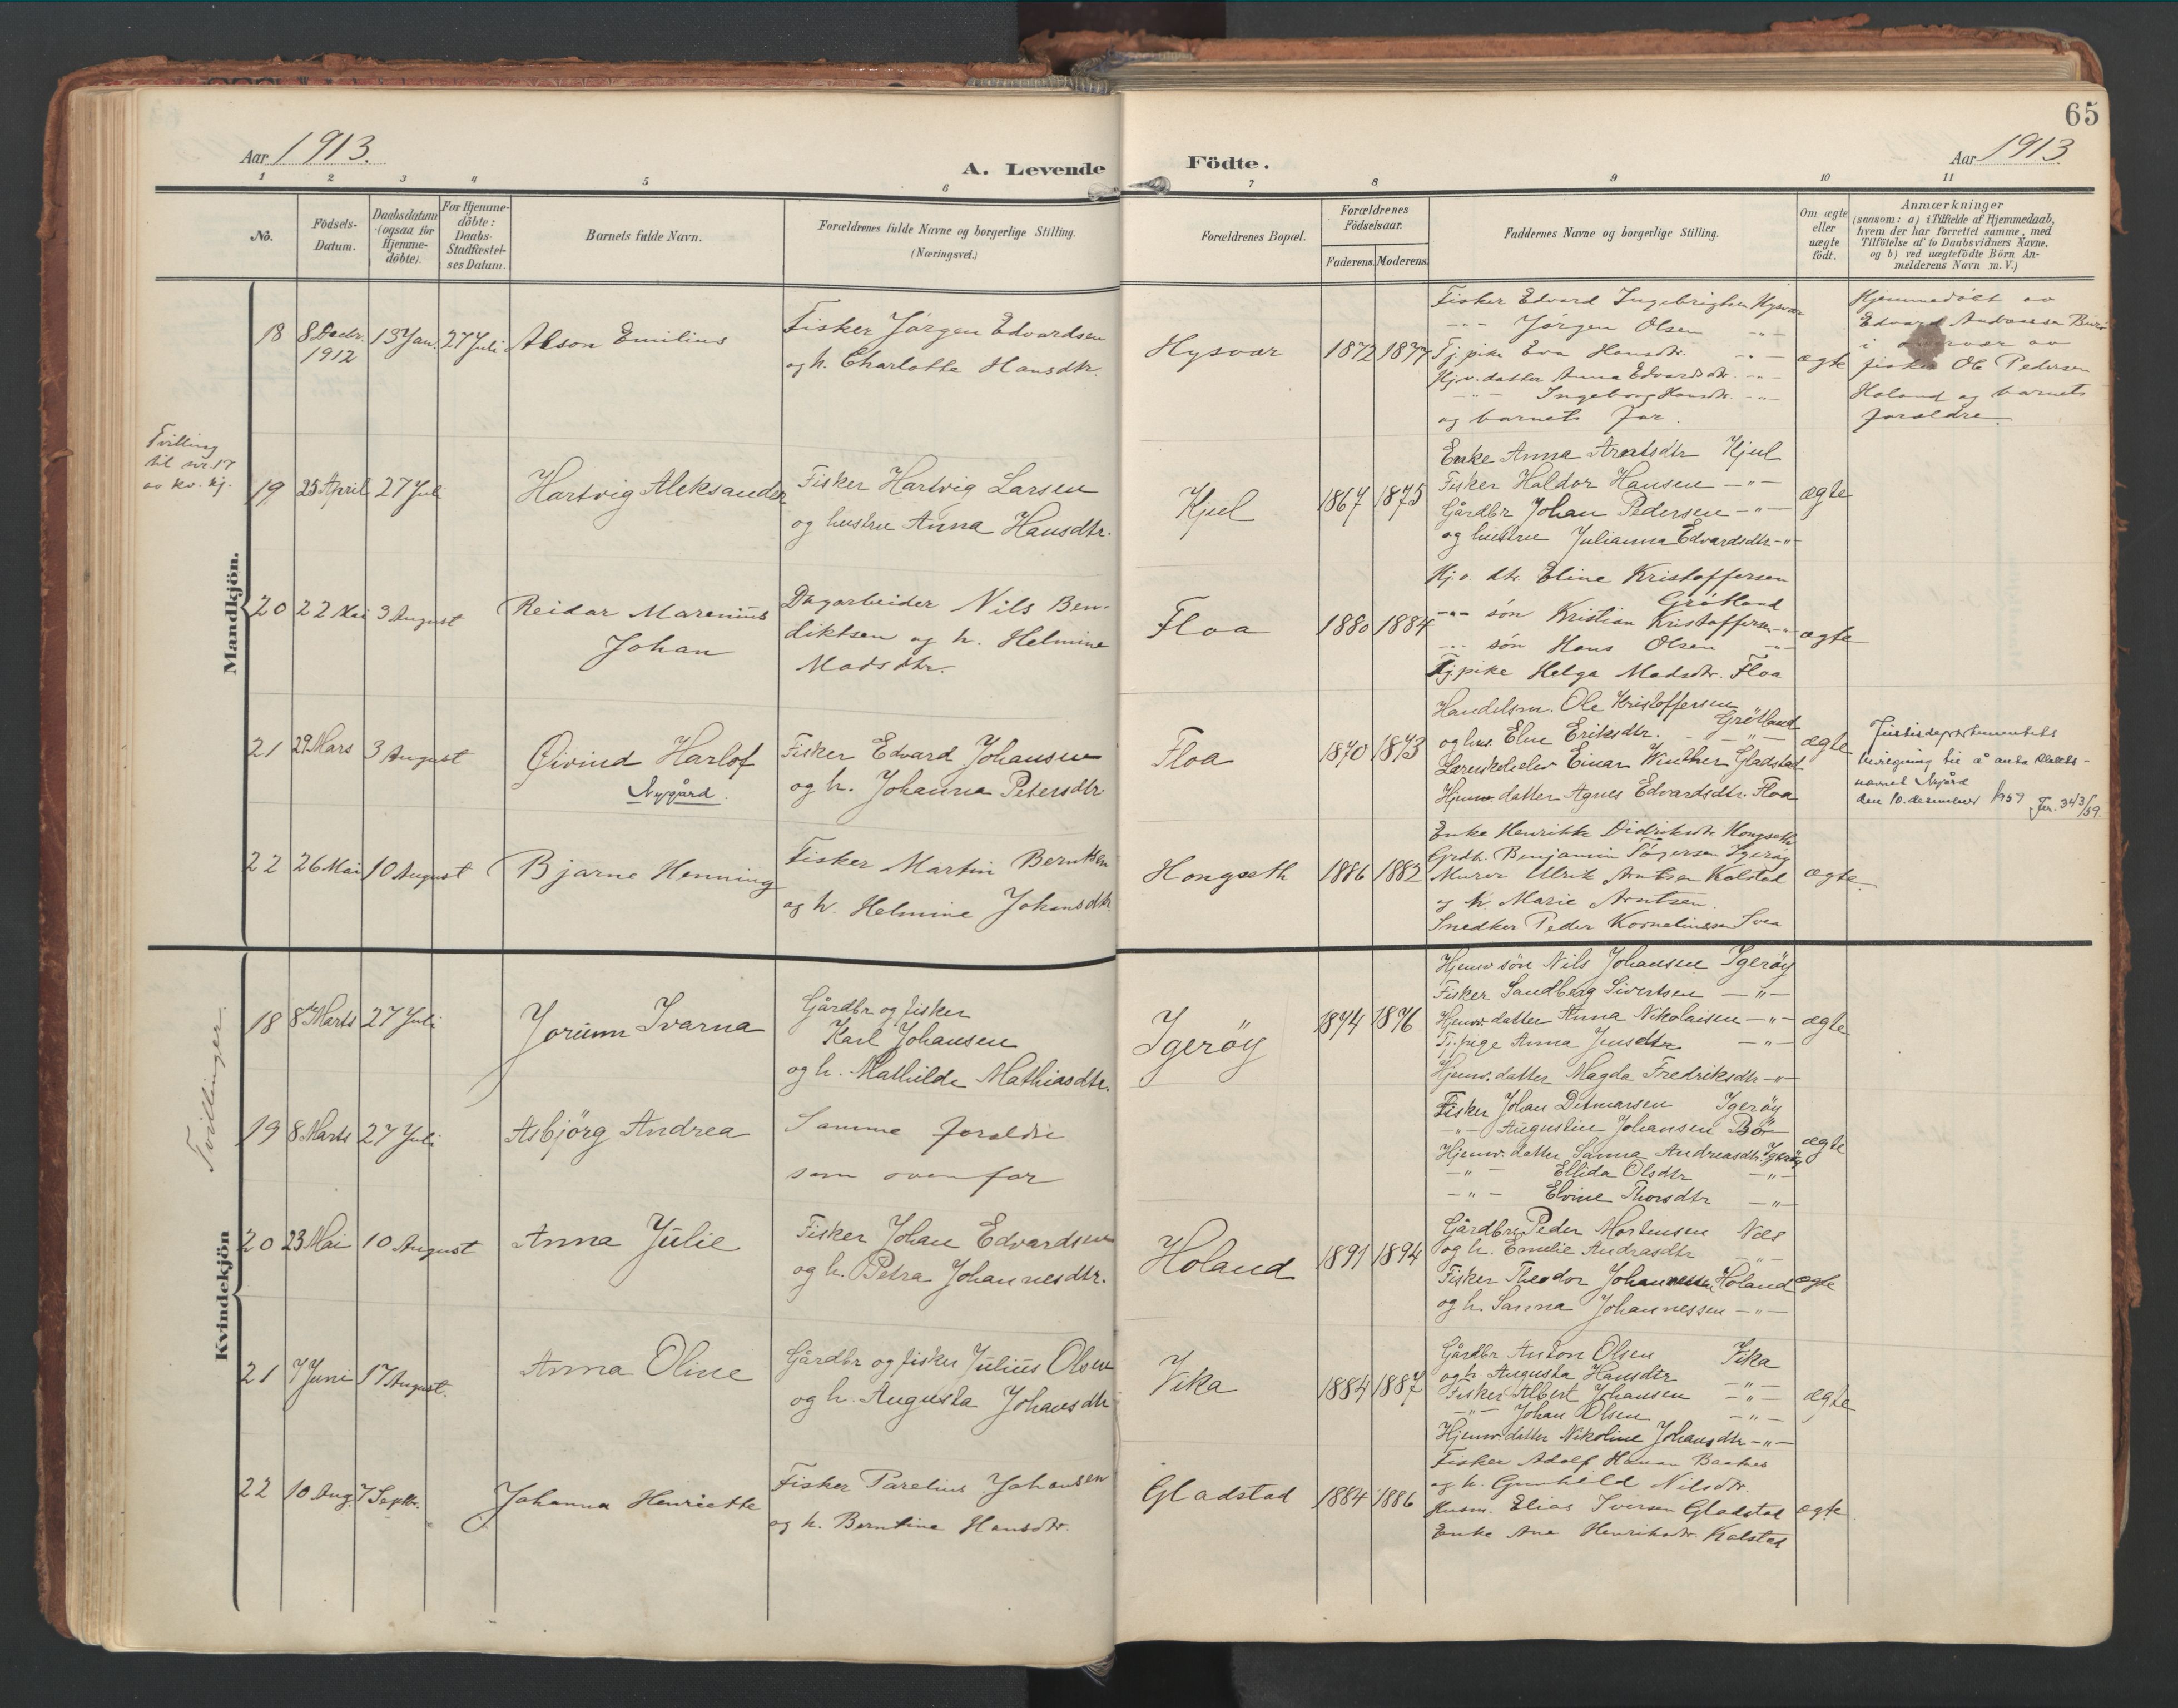 65
Aar 1913.
A. Levende Födte.
Aar 1913.
1 2 3 4 5 6 7 8 9 10 11
No.
Födsels-
Datum.
Daabsdatum
(ogsaa for
Hjemme-
döbte).
For Hjemme-
döbte:
Daabs-
Stadfæstel-
ses Datum.
Barnets fulde Navn.
Forældrenes fulde Navne og borgerlige Stilling.
(Næringsvei.)
Forældrenes Bopæl.
Forældrenes
Födselsaar.
Faderens. Moderens.
Faddernes Navne og borgerlige Stilling.
Om ægte
eller
uægte
födt.
Anmærkninger
(saasom: a) i Tilfælde af Hjemmedaab,
hvem der har forrettet samme, med
Tilföielse af to Daabsvidners Navne,
og b) ved uægtefödte Börn An-
melderens Navn m. V.)
Mandkjön.
18 8 Decbr. 1912 13 Jan. 27 Juli Alson Emilius
Fisker Jørgen Edvardsen
og h. Charlotte Hansdtr.
Hysvær 1872 1877
Fisker Edvard Ingebrigtsen Hysvær
-"- Jörgen Olsen -"-
Tj. pike Eva Hansdtr. -"-
Hjv. datter Anna Edvardsdtr. -"-
-"- Ingeborg Hansdtr. -"-
og barnets far.
ægte
Hjemmedöbt av
Edvard Andreasen
i av
fisker Ole Pedersen
Holand og barnets
forældre.
Tvilling
til nr. 17
av kv. kj.
19 25 April 27 Juli Hartvig Aleksander
Fisker Hartvig Larsen
og hustru Anna Hansdtr.
Kjul 1867 1875
Enke Anna Arntsdtr Kjul
Fisker Haldor Hansen -"-
Gårdbr Johan Pedersen -"-
og hustru Julianna Edvardsdtr -"-
ægte
20 22 Mai 3 August Reidar Marenius
Johan
Dagarbeider Nils Ben-
diktsen og h. Helmine
Madsdtr.
Floa 1880 1884
Hjv. dtr. Eline Kristoffersen
Grötland
-"- sön Kristian Kristoffersen -"-
-"- sön Hans Olsen -"-
Tj pike Helga Madsdtr. Floa
ægte
21 29 Mars 3 August Öivind Harlof
Nygård.
Fisker Edvard Johansen
og h. Johanna Petersdtr
Floa 1870 1873
Handelsm. Ole Kristoffersen
Grötland
og hus. Elne Eriksdtr. -"-
Lærerskoleelev Einar Winther Gladstad
Hjemv datter Agnes Edvardsdtr. Floa
ægte
Justisdepartementets
bevilgning til å anta slekts-
navnet Nygård
den 10. desember 1959 Jnr. 343/59.
22 26 Mai 10 August Bjarne Henning
Fisker Martin Berntsen
og h. Helmine Johansdtr.
Hongseth 1886 1882
Enke Henrikke Didriksdtr Hongseth
Grdbr. Benjamin Igeröy
Murer Ulrik Arntsen Kolstad
og h Marie Arntsen.
Snedker Peder Korneliussen Svea
ægte.
Kvindekjön
Tvillinger.
18 8de Marts 27 Juli Jorunn Ivarna
Gårdbr og fisker
Karl Johansen
og h. Mathilde Mathiasdtr.
Igeröy 1874 1876
Hjemv sön Nils Johansen Igeröy
Fisker Sandberg Sivertsen -"-
Hjemv. datter Anna Nikolaisen -"-
Tj. pige Anna Jensdtr -"-
Hjemv. datter Magda Fredriksdtr -"-
ægte
19 8 Marts 27 Juli Asbjörg Andrea
Samme foreldre
som ovenfor
Fisker Johan Ditmarsen Igeröy
-"- Augustin Johansen Bö
Hjemv. datter Sanna Andreasdtr. Igeröy
-"- Ellida Olsdtr -"-
-"- Elvine Thorsdtr -"-
ægte
20 23 Mai 10 August Anna Julie
Fisker Johan Edvardsen
og h. Petra Johannesdtr.
Holand 1891 1894
Gårdbr. Peder Mortensen Nes
og h. Emilie Andrasdtr -"-
Fisker Theodor Johannessen Holand
og h. Sanna Johannessen -"-
ægte
21 7 Juni 17 August. Anna Oline
Gårdbr og fisker Julius Olsen
og h. Augusta Johansdtr
Vika 1884 1887
Gårdbr Anton Olsen Vika
og h. Augusta Hansdtr -"-
Fisker Albert Johansen -"-
-"- Johan Olsen -"-
Hjemv. datter Nikoline Johansdtr -"-
ægte
22 10 Aug 7 Septbr. Johanna Henriette
Fisker Parelius Johansen
og h. Berntine Hansdtr.
Gladstad 1884 1886
Fisker Adolf Hanson
og h. Gunhild Nilsdtr.
Husm. Elias Iversen Gladstad
Enke Ane Henriksdtr. Kolstad
ægte